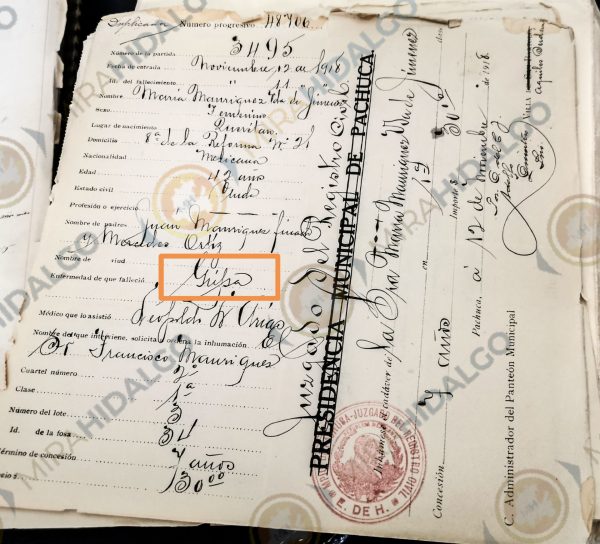 Duplicado Número progresivo 48706
Número de la partida 3495
Fecha de entrada Noviembre 12 de 1918
Id. del fallecimiento " 11 "
Nombre María Manriquez Vda de Jimenez
Sexo Femenino
Lugar de nacimiento
Domicilio 8ª de la Reforma Nº 21
Nacionalidad Mexicana
Edad 42 años
Estado civil Viuda
Profesión o ejercicio
Nombre de padres Juan Manriquez finado
y Mercedes Ortiz
Nombre de viud
Enfermedad de que falleció Gripa
Médico que lo asistió Leopoldo
Nombre del que interviene, solicita u ordena la inhumación. El
Sr. Francisco Manriquez
Cuartel número 2º
Clase 1ª
Número del lote 3
Id. de la fosa 34
Término de concesión 7 años
30.00
Juzgado del Registro Civil
PRESIDENCIA MUNICIPAL DE PACHUCA.
Inhúmese el cadáver de la Sra María Manriquez Vda de Jimenez
Concesión 7 años
Importe $ 30
Pachuca, a 12 de Noviembre de 1918
C. Administrador del Panteón Municipal
JUZGADO DEL REGISTRO CIVIL
E. DE H.
MIRA HIDALGO